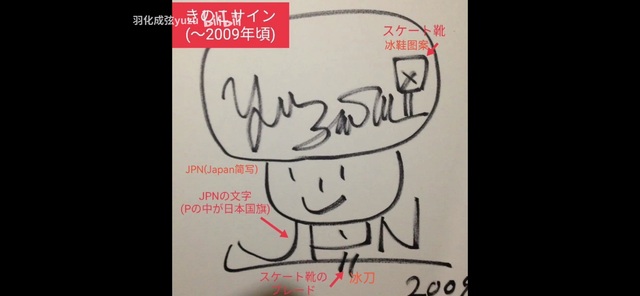 羽化成弦yuzu bilibili
きのこサイン
(〜2009年頃)
スケート靴
冰鞋图案
Yuzuru
JPN(Japan简写)
JPNの文字
(Pの中が日本国旗)
JPN
スケート靴の
ブレード
冰刀
2009